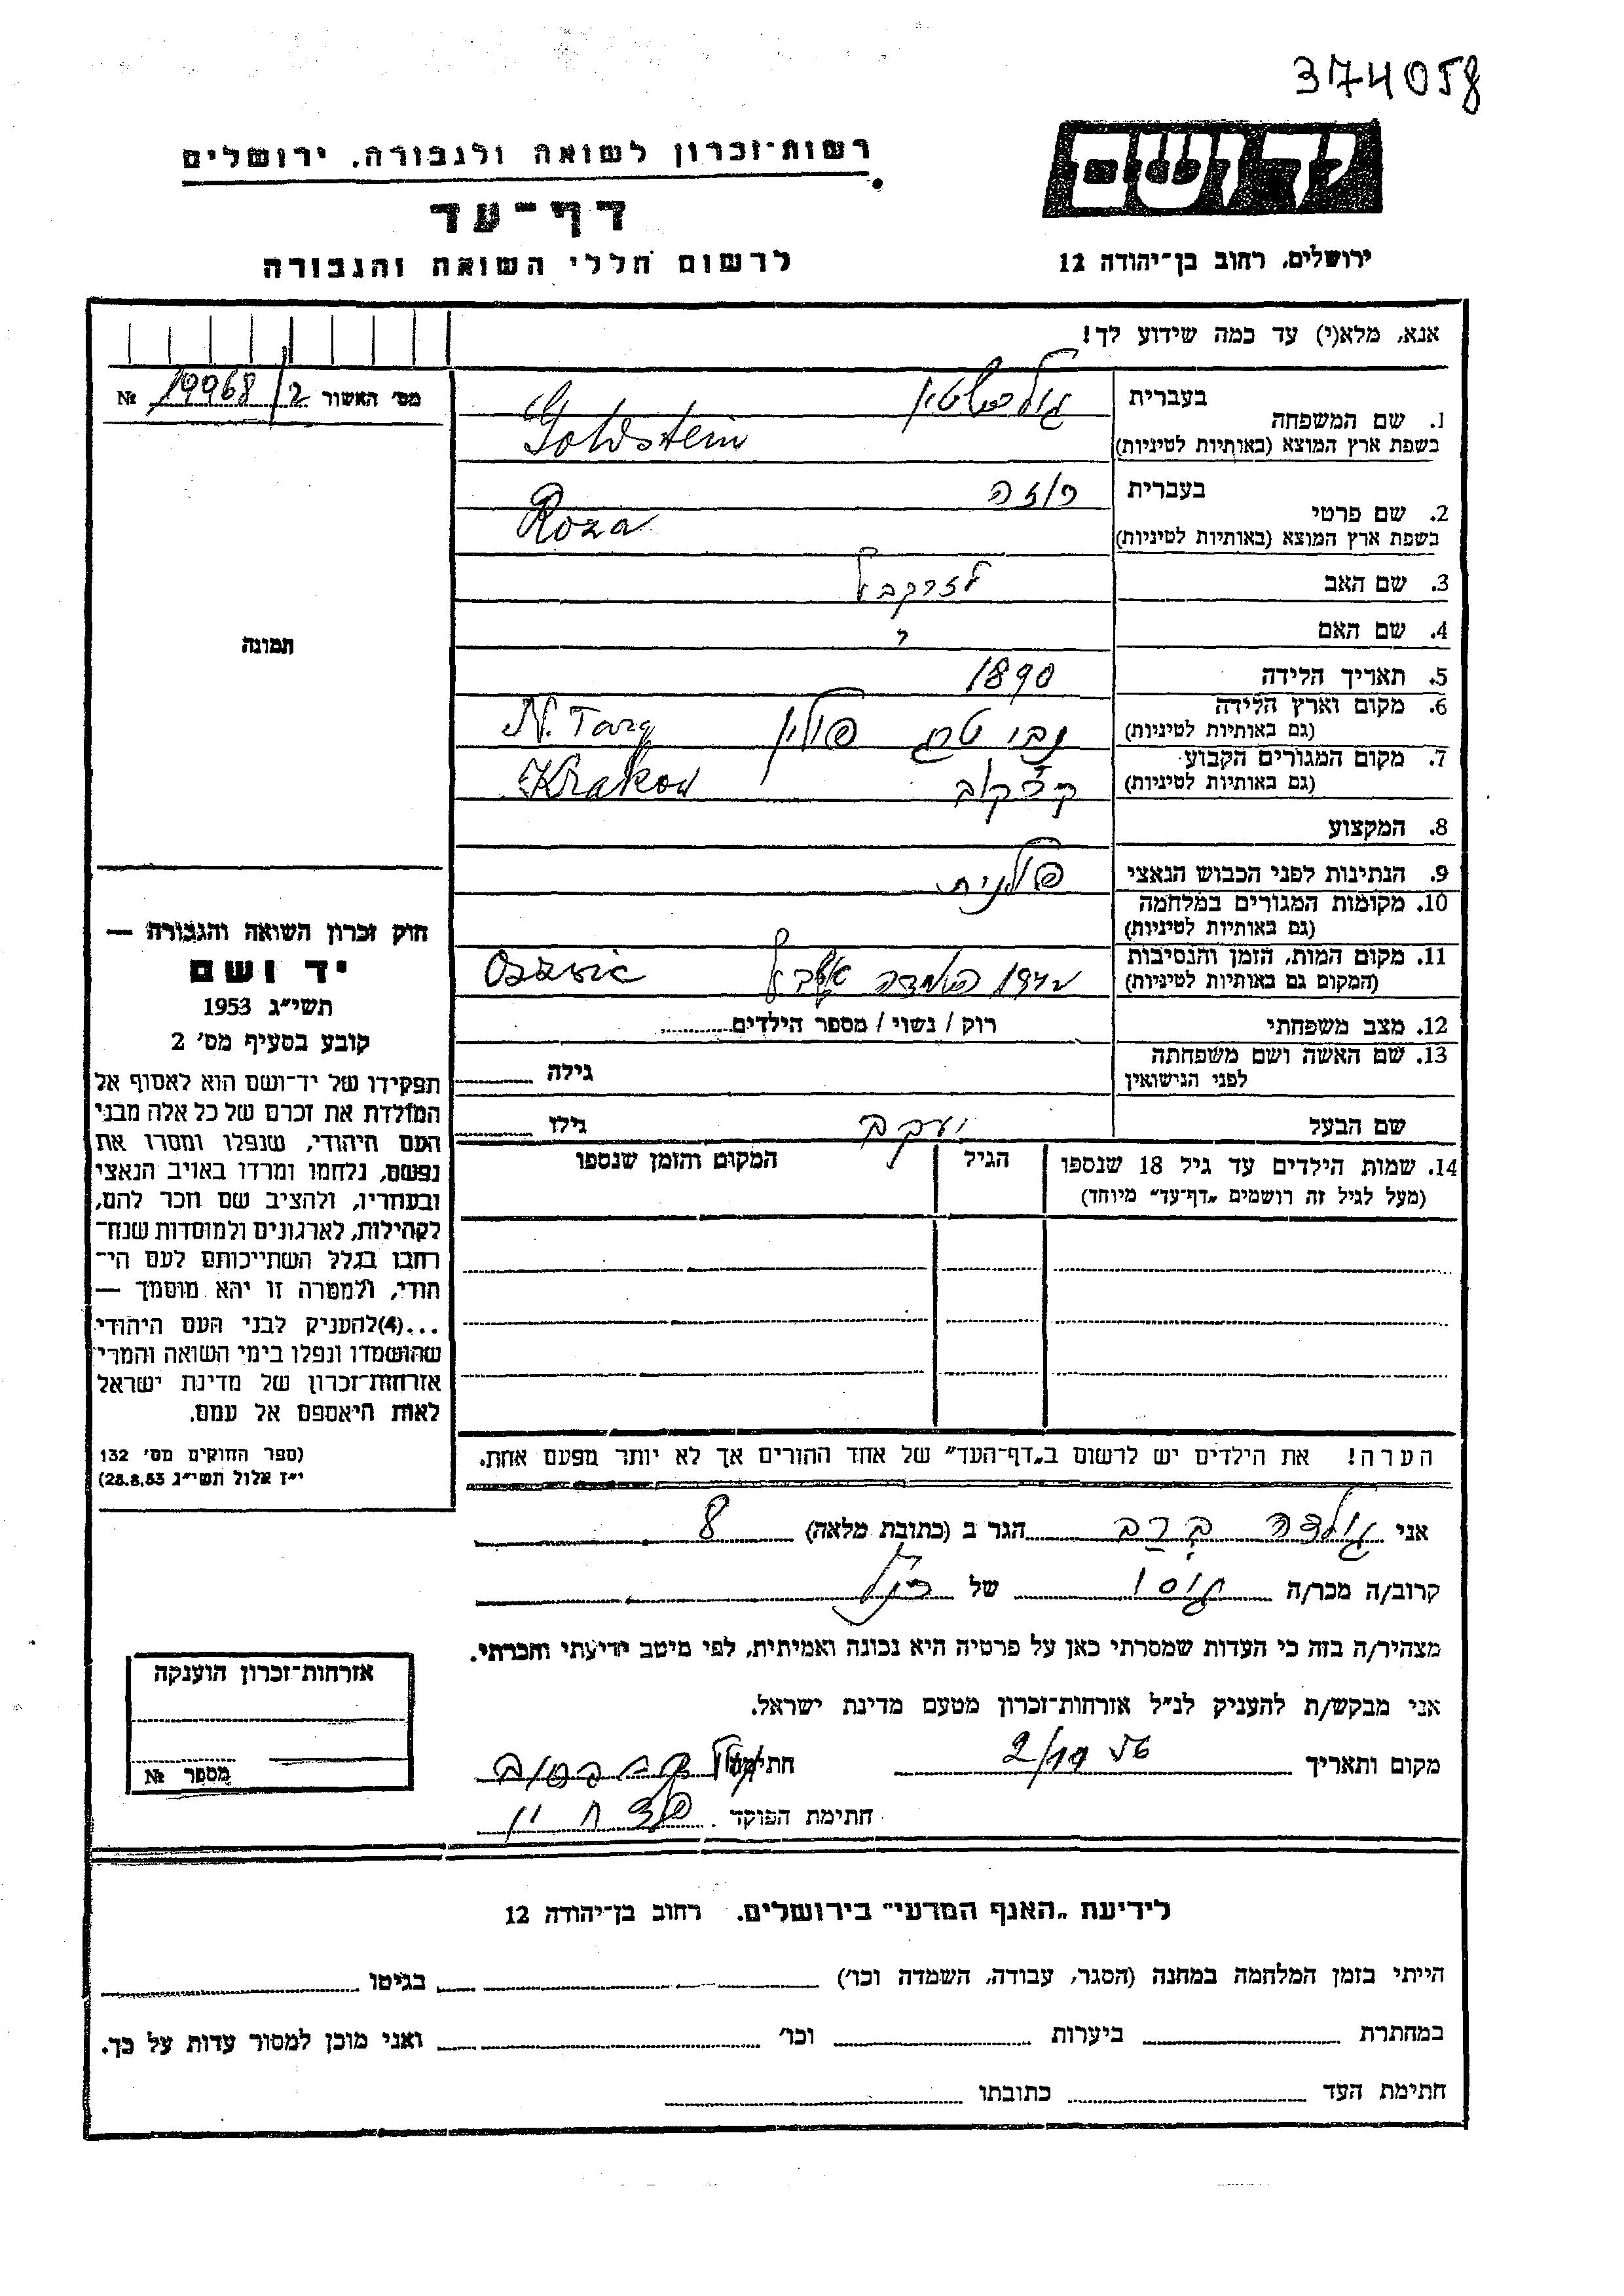 374058
יד ושם
ירושלים, רחוב בן־יהודה 12
רשות־זכרון לשואה ולגבורה, ירושלים
דף־עד
לרשום חללי השואה והגבורה
אנא, מלא(י) עד כמה שידוע לך!
מס׳ האשור 19968/2 №
1. שם המשפחה
בעברית גולדשטיין
בשפת ארץ המוצא (באותיות לטיניות) Goldstein
2. שם פרטי
בעברית רוזה
בשפת ארץ המוצא (באותיות לטיניות) Roza
3. שם האב
4. שם האם ?
5. תאריך הלידה 1890
6. מקום וארץ הלידה
(גם באותיות לטיניות) נובי טרג פולין N. Targ
7. מקום המגורים הקבוע
(גם באותיות לטיניות) קרקוב Krakow
8. המקצוע
9. הנתינות לפני הכבוש הנאצי פולנית
10. מקומות המגורים במלחמה
(גם באותיות לטיניות)
11. מקום המות, הזמן והנסיבות
(המקום גם באותיות לטיניות) השמדה
12. מצב משפחתי רוק / נשוי / מספר הילדים
13. שם האשה ושם משפחתה
לפני הנישואין גילה
שם הבעל יעקב גילו
14. שמות הילדים עד גיל 18 שנספו הגיל המקום והזמן שנספו
(מעל לגיל זה רושמים „דף־עד״ מיוחד)
הערה! את הילדים יש לרשום ב„דף־העד״ של אחד ההורים אך לא יותר מפעם אחת.
תמונה
חוק זכרון השואה והגבורה —
יד ושם
תשי״ג 1953
קובע בסעיף מס׳ 2
תפקידו של יד־ושם הוא לאסוף אל
המולדת את זכרם של כל אלה מבני
העם היהודי, שנפלו ומסרו את
נפשם, נלחמו ומרדו באויב הנאצי
ובעוזריו, ולהציב שם וזכר להם,
לקהילות, לארגונים ולמוסדות שנח־
רבו בגלל השתייכותם לעם הי־
הודי, ולמטרה זו יהא מוסמך —
...(4)להעניק לבני העם היהודי
שהושמדו ונפלו בימי השואה והמרי
אזרחות־זכרון של מדינת ישראל
לאות היאספם אל עמם.
(ספר החוקים מס׳ 132
י״ז אלול תשי״ג 28.8.53)
אני הגר ב (כתובת מלאה)
קרוב/ה מכר/ה של
מצהיר/ה בזה כי העדות שמסרתי כאן על פרטיה היא נכונה ואמיתית, לפי מיטב ידיעתי והכרתי.
אני מבקש/ת להעניק לנ״ל אזרחות־זכרון מטעם מדינת ישראל.
מקום ותאריך חתימה
חתימת הפוקד
אזרחות־זכרון הוענקה
מספר №
לידיעת „האגף המדעי״ בירושלים, רחוב בן־יהודה 12
הייתי בזמן המלחמה במחנה (הסגר, עבודה, השמדה וכו׳) בגיטו
במחתרת ביערות וכו׳ ואני מוכן למסור עדות על כך.
חתימת העד כתובתו